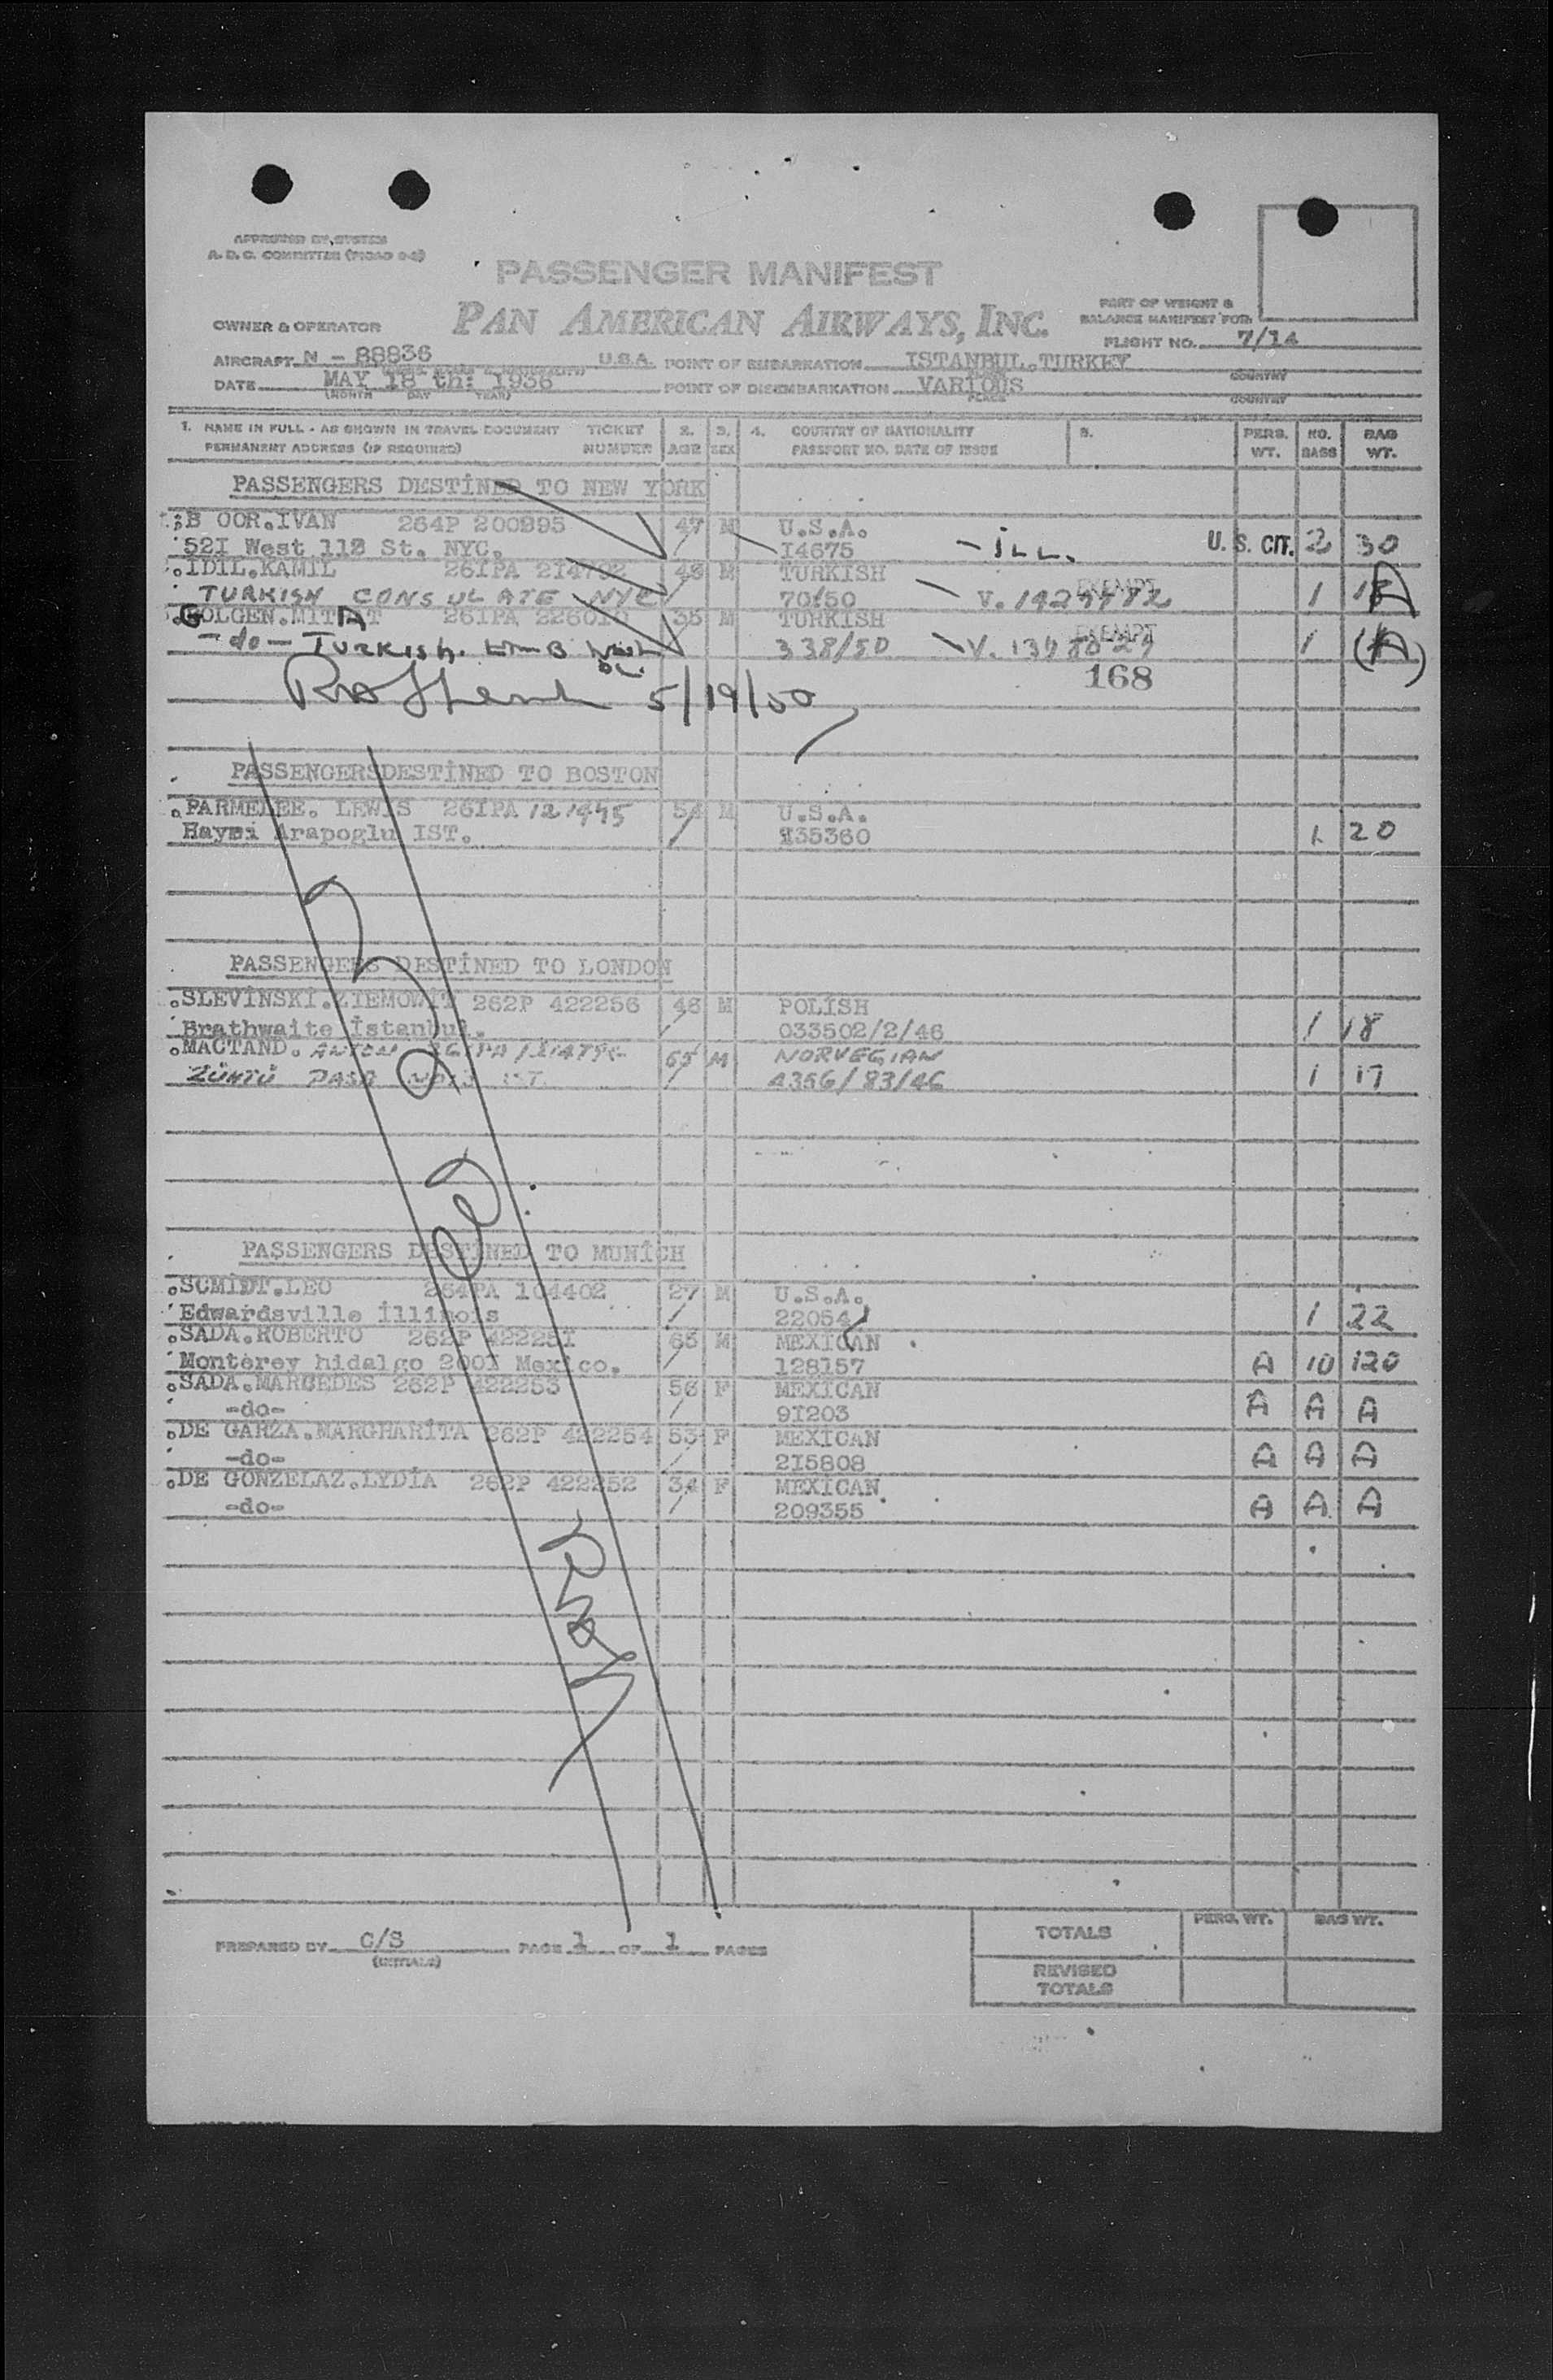 APPROVED BY SYSTEM
A. D. C. COMMITTEE (PICAO 9-2)
PASSENGER MANIFEST
OWNER & OPERATOR PAN AMERICAN AIRWAYS, INC.
PART OF WEIGHT &
BALANCE MANIFEST FOR
FLIGHT NO. 7/14
AIRCRAFT N - 88836 U.S.A. POINT OF EMBARKATION ISTANBUL.TURKEY
COUNTRY
DATE MAY 18 th: 1936 POINT OF DISEMBARKATION VARIOUS
(MONTH DAY YEAR) PLACE COUNTRY
1. NAME IN FULL - AS SHOWN IN TRAVEL DOCUMENT TICKET 2. 3. 4. COUNTRY OF NATIONALITY 5. PERS. NO. BAG
PERMANENT ADDRESS (IF REQUIRED) NUMBER AGE SEX PASSPORT NO. DATE OF ISSUE WT. BAGS WT.
PASSENGERS DESTİNED TO NEW YORK
B OOR.IVAN 264P 200895 47 M U.S.A.
52I West 112 St. NYC. I4675 - ILL. U. S. CIT. 2 30
.IDIL.KAMIL 26IPA 214792 48 M TURKISH EXEMPT
TURKISH CONSULATE NYC 70/50 V. 1 A
GOLGEN.MITAT 26IPA 35 M TURKISH EXEMPT
-do- TURKISH. 338/50 V. 1 (A)
168
5/19/50
PASSENGERSDESTİNED TO BOSTON
.PARMELEE. LEWIS 26IPA 121495 M U.S.A.
Arapoglu IST. 135360 1 20
PASSENGERS DESTİNED TO LONDON
.SLEVİNSKİ.ZIEMOWİT 262P 422256 46 M POLİSH
Brathwaite İstanbul. 033502/2/46 1 18
.MACTAND. ANTON 65 M NORVEGIAN
ZÜHTÜ PASA 4356/83/46 1 17
PASSENGERS DESTİNED TO MUNİCH
.SCMİDT.LEO 264PA 104402 27 M U.S.A.
Edwardsville İllinois 22054 1 22
.SADA.ROBERTO 262P 42225I 65 M MEXİCAN
Monterey hidalgo 200I Mexico. 128157 A 10 120
.SADA.MARCEDES 262P 422253 56 F MEXİCAN
-do- 9I203 A A A
.DE GARZA.MARGHARİTA 262P 422254 53 F MEXİCAN
-do- 2I5808 A A A
.DE GONZELAZ.LYDİA 262P 422252 34 F MEXİCAN
-do- 209355 A A A
PREPARED BY C/S PAGE 1 OF 1 PAGES
(INITIALS)
PERS. WT. BAG WT.
TOTALS
REVISED
TOTALS